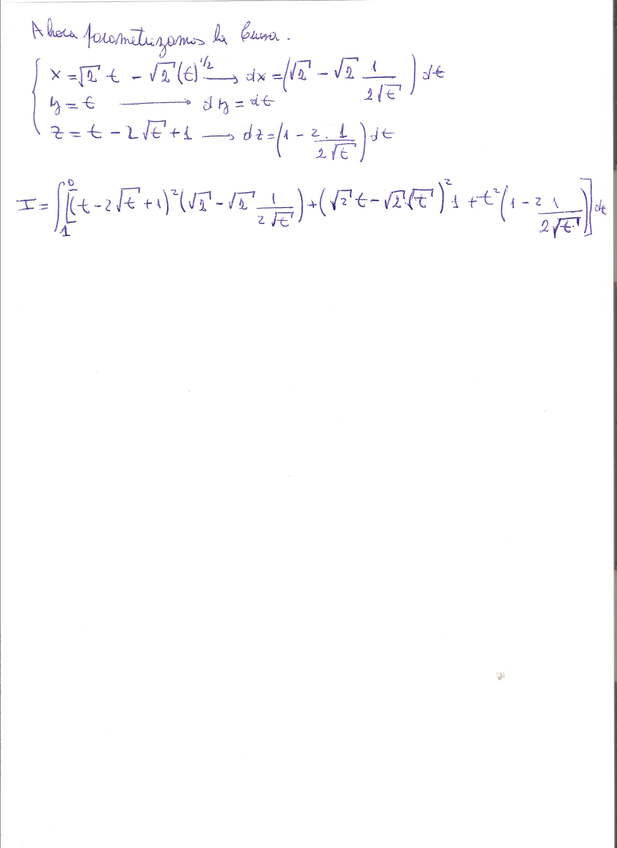 Ahora parametrizamos la Curva.
x = √2 t - √2 (t)^1/2 → dx = (√2 - √2 1/(2√t)) dt
y = t → dy = dt
z = t - 2√t + 1 → dz = (1 - 2 · 1/(2√t)) dt
I = ∫_1^0 [(t - 2√t + 1)² (√2 - √2 1/(2√t)) + (√2 t - √2 √t)² 1 + t² (1 - 2 1/(2√t))] dt